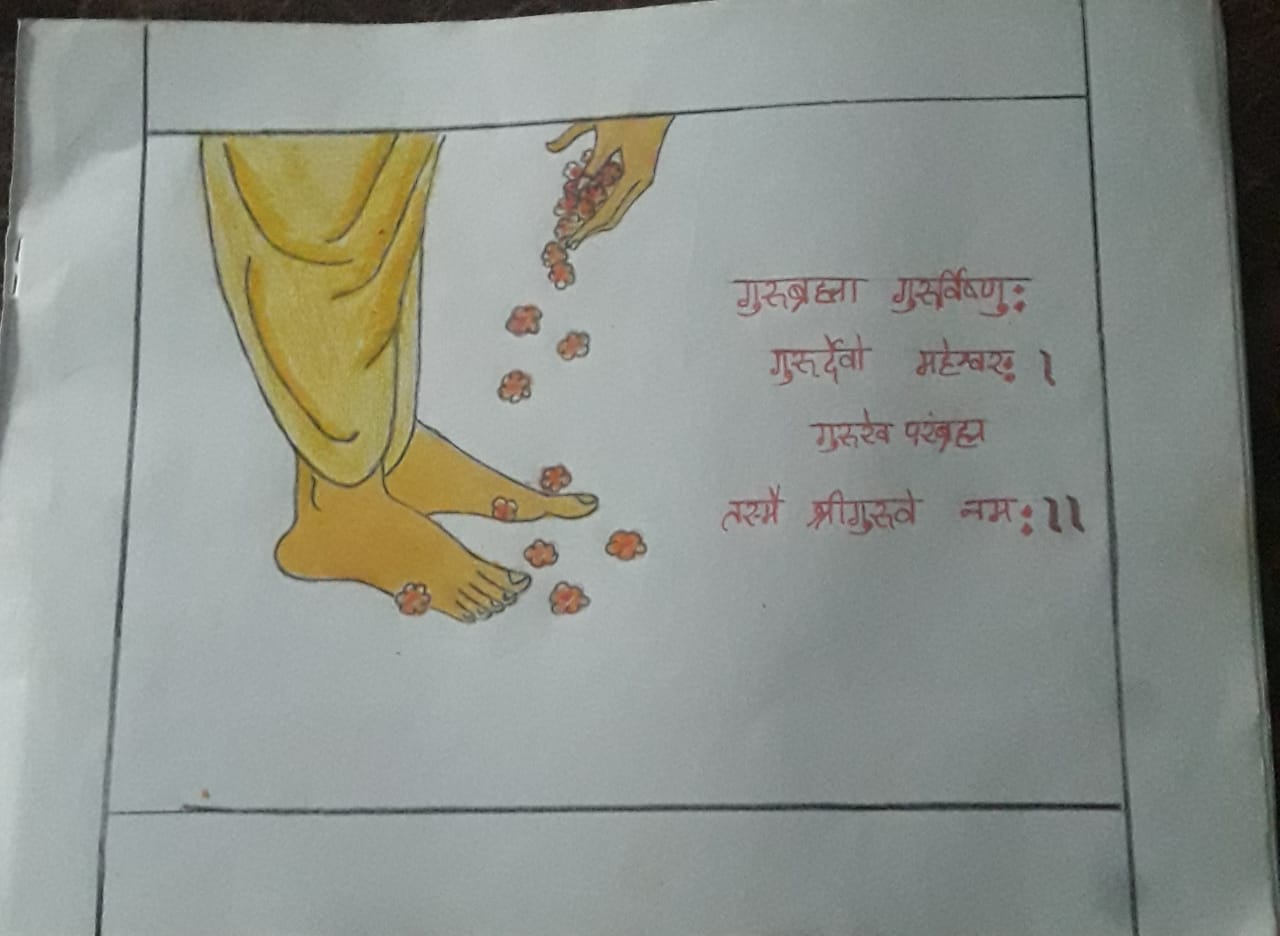 गुरुब्रह्मा गुरुर्विष्णुः
गुरुर्देवो महेश्वरः ।
गुरुरेव परंब्रह्म
तस्मै श्रीगुरुवे नमः ।।